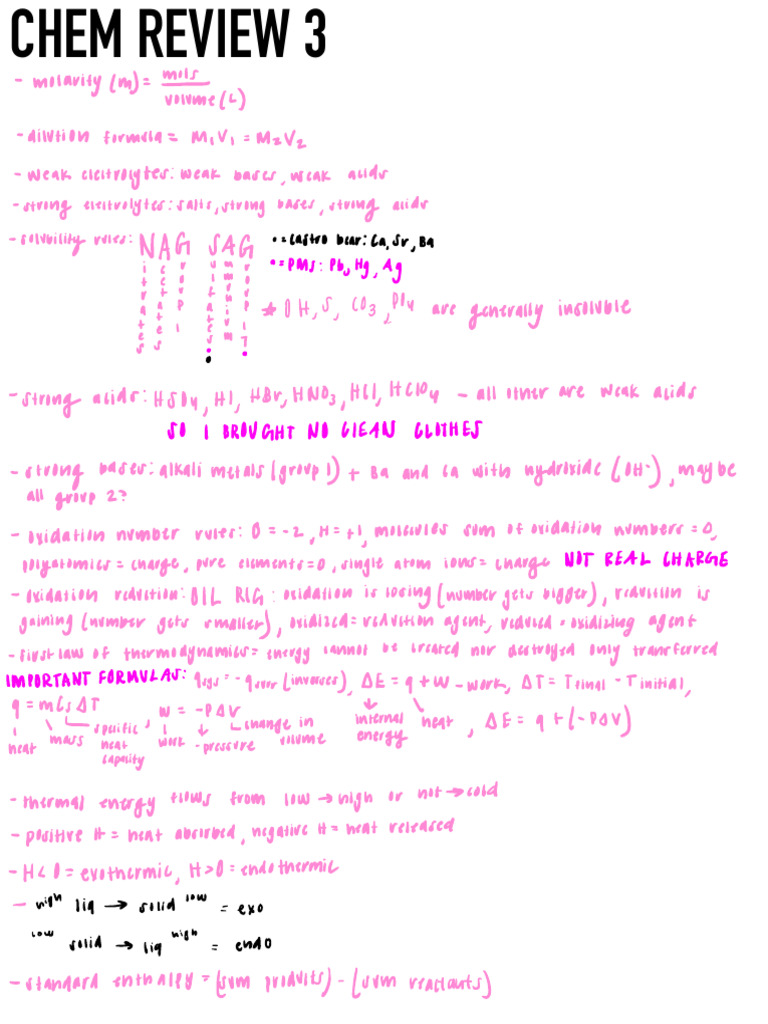 CHEM REVIEW 3
- molarity (m) = mols / volume (L)
- dilution formula = M₁V₁ = M₂V₂
- weak electrolytes: weak bases, weak acids
- strong electrolytes: salts, strong bases, strong acids
- solubility rules: NAG SAG • = castro bear: Ca, Sr, Ba
• = PMS: Pb, Hg, Ag
itrates cetates roup 1 ulfates mmonium roup 17
* OH, S, CO₃, PO₄ are generally insoluble
- strong acids: HSO₄, HI, HBr, HNO₃, HCl, HClO₄ - all other are weak acids
SO I BROUGHT NO CLEAN CLOTHES
- strong bases: alkali metals (group 1) + Ba and Ca with hydroxide (OH⁻), maybe
all group 2?
- oxidation number rules: O = -2, H = +1, molecules sum of oxidation numbers = 0,
polyatomics = charge, pure elements = 0, single atom ions = charge NOT REAL CHARGE
- oxidation reduction: OIL RIG: oxidation is losing (number gets bigger), reduction is
gaining (number gets smaller), oxidized = reduction agent, reduced = oxidizing agent
- first law of thermodynamics = energy cannot be created nor destroyed only transferred
IMPORTANT FORMULAS: qsys = -qsurr (inverses), ΔE = q + w - work, ΔT = Tfinal - Tinitial,
q = mCsΔT w = -PΔV internal energy heat, ΔE = q + (-PΔV)
heat mass specific heat capacity work - pressure change in volume
- thermal energy flows from low → high or hot → cold
- positive H = heat absorbed, negative H = heat released
- H < 0 = exothermic, H > 0 = endothermic
- high liq → solid low = exo
low solid → liq high = endo
- standard enthalpy = (sum products) - (sum reactants)